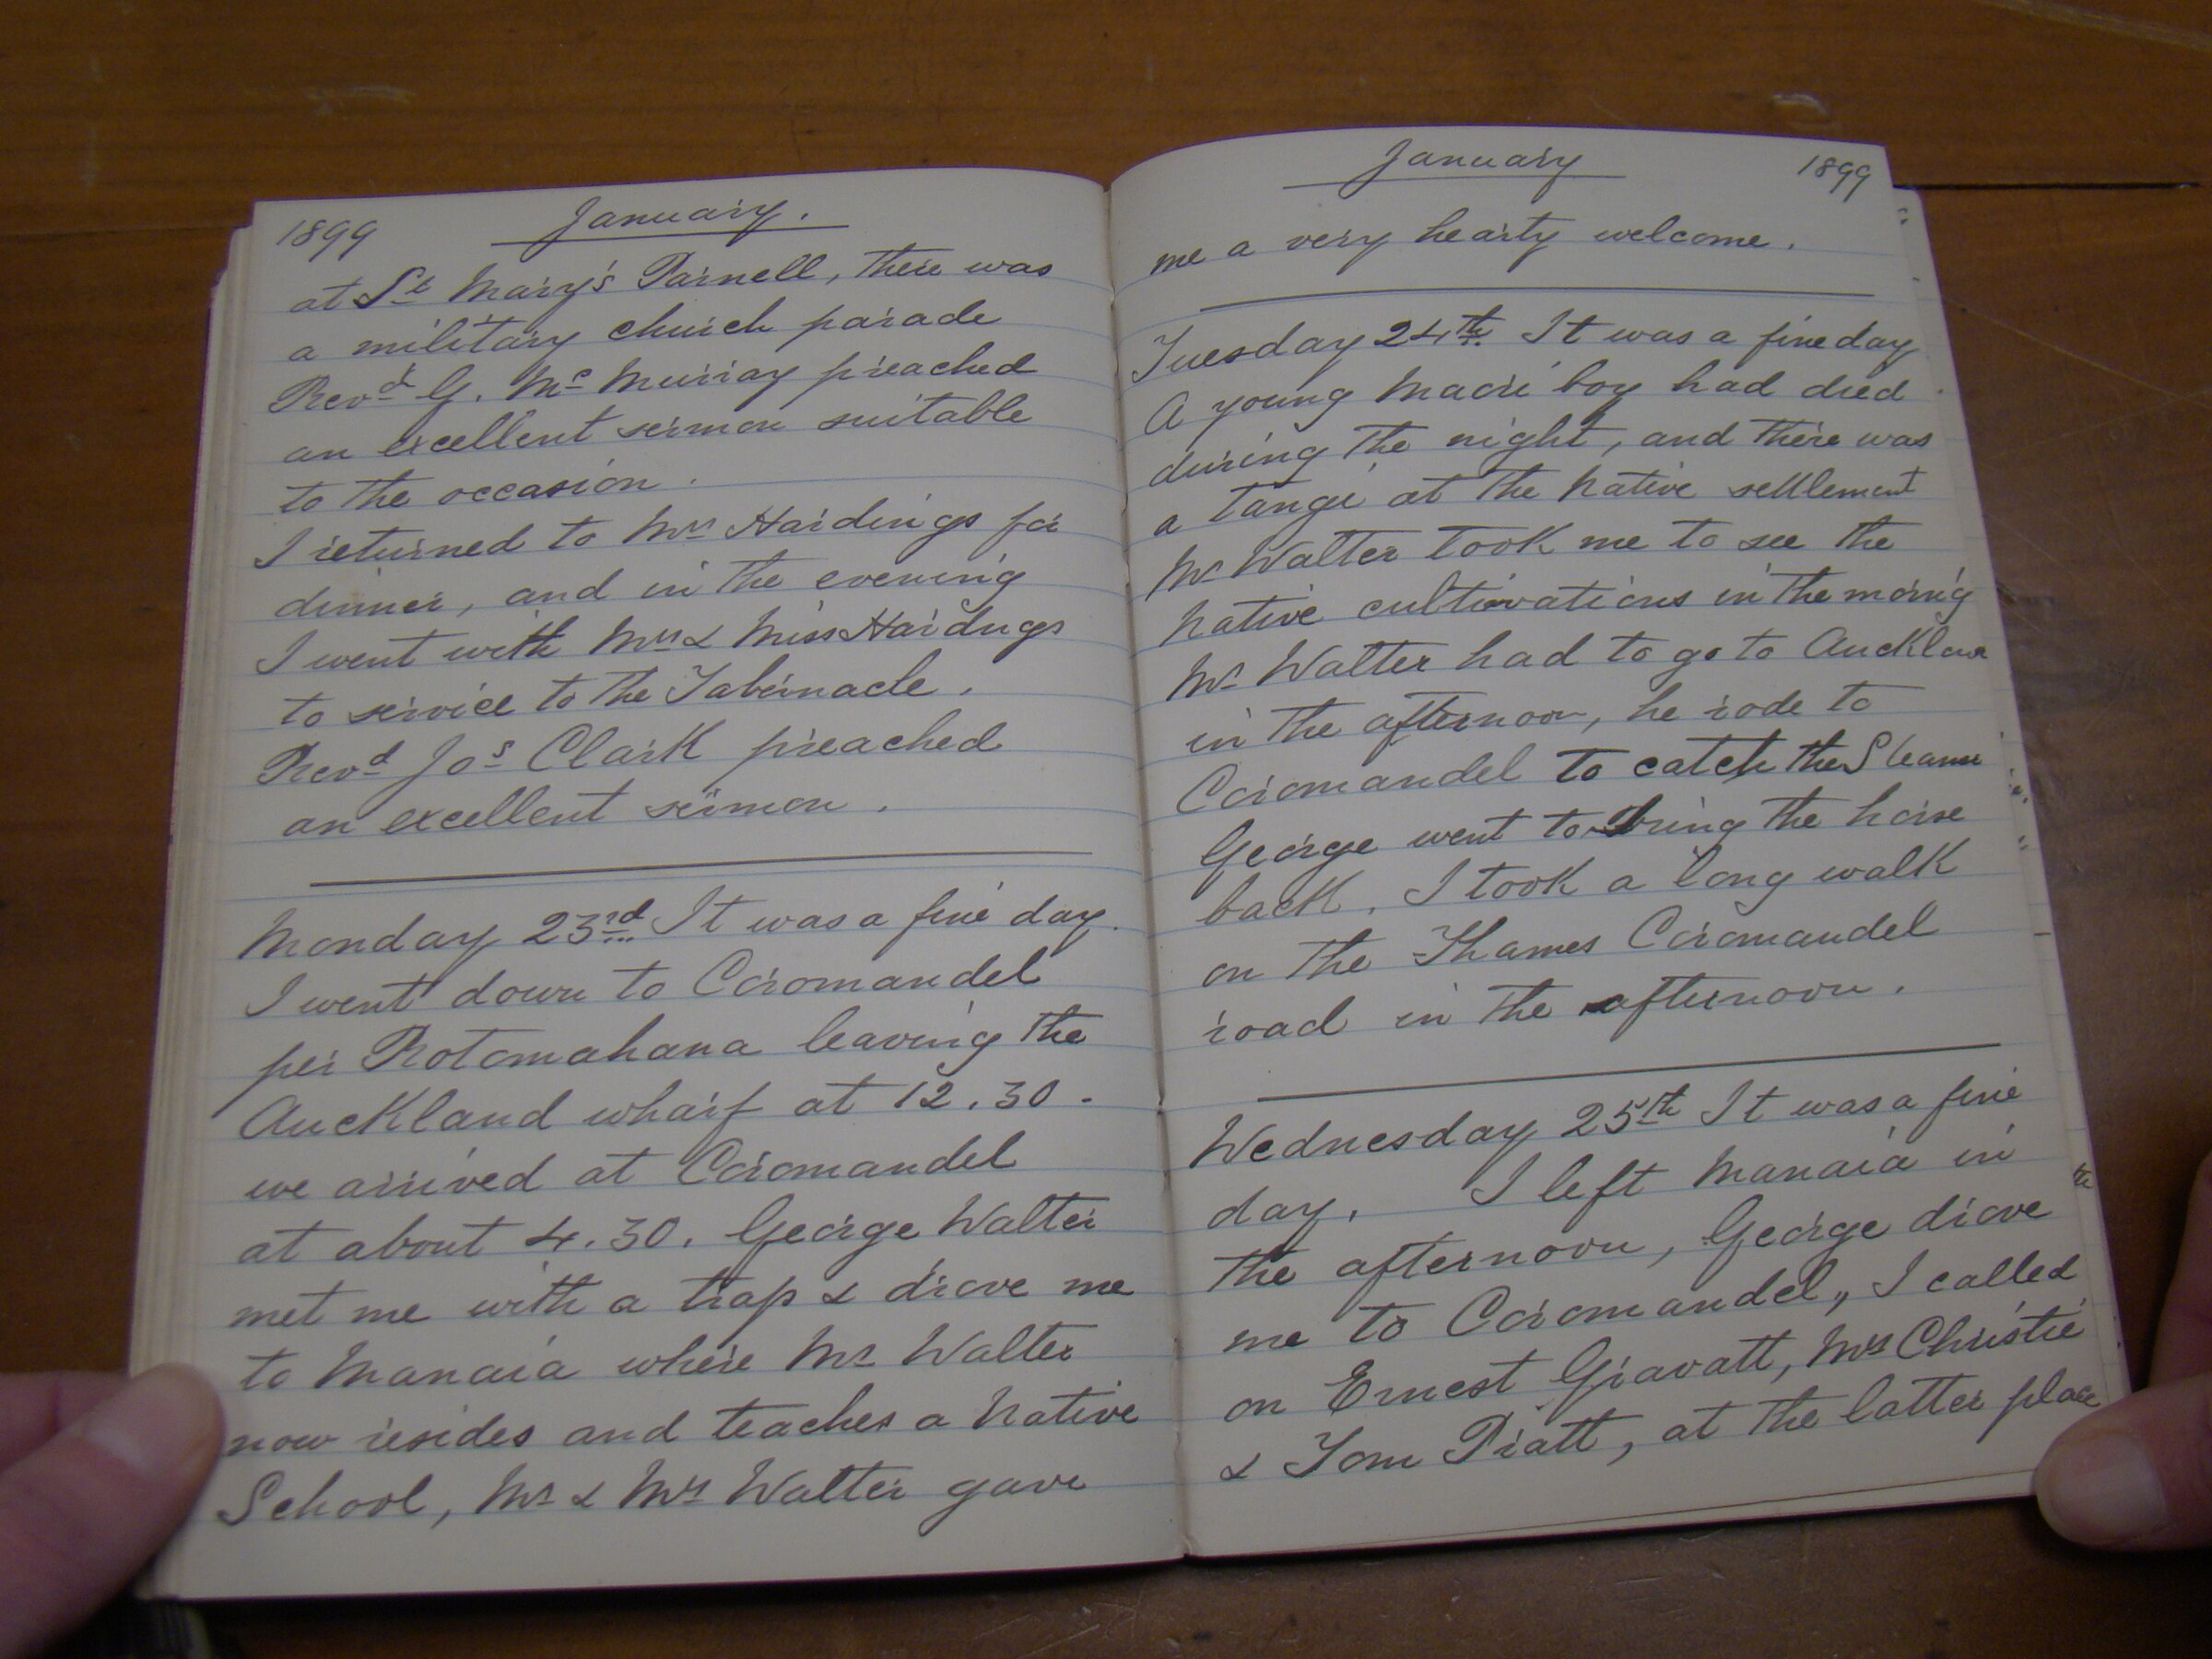 1899 January.
at St Mary's Parnell, there was
a military church parade
Revd G. Mc Murray preached
an excellent sermon suitable
to the occasion.
I returned to Mrs Hardings for
dinner, and in the evening
I went with Mrs & Miss Hardings
to service to the Tabernacle.
Revd Jos Clark preached
an excellent sermon.
Monday 23rd It was a fine day.
I went down to Coromandel
per Rotomahana leaving the
Auckland wharf at 12.30.
we arrived at Coromandel
at about 4.30. George Walter
met me with a trap & drove me
to Manaia where Mr Walter
now resides and teaches a Native
School, Mr & Mrs Walter gave
January 1899
me a very hearty welcome.
Tuesday 24th It was a fine day
A young Maori boy had died
during the night, and there was
a tangi at the Native settlement
Mr Walter took me to see the
Native cultivations in the mornig
Mr Walter had to go to Auckland
in the afternoon, he rode to
Coromandel to catch the Steamer
George went to bring the horse
back. I took a long walk
on the Thames Coromandel
road in the afternoon.
Wednesday 25th It was a fine
day. I left Manaia in
the afternoon, George drove
me to Coromandel, I called
on Ernest Gravatt, Mrs Christie
& Tom Pratt, at the latter place